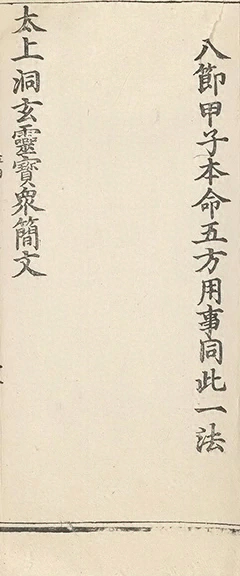 八節甲子本命五方用事同此一法
太上洞玄靈寶衆簡文